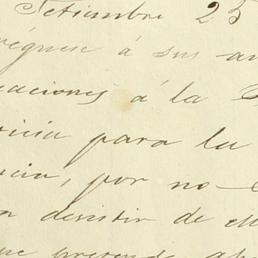 Setiembre 25
réguese á sus an
caciones á la
ticia para la
ncia, por no
a desistir de
que pretende